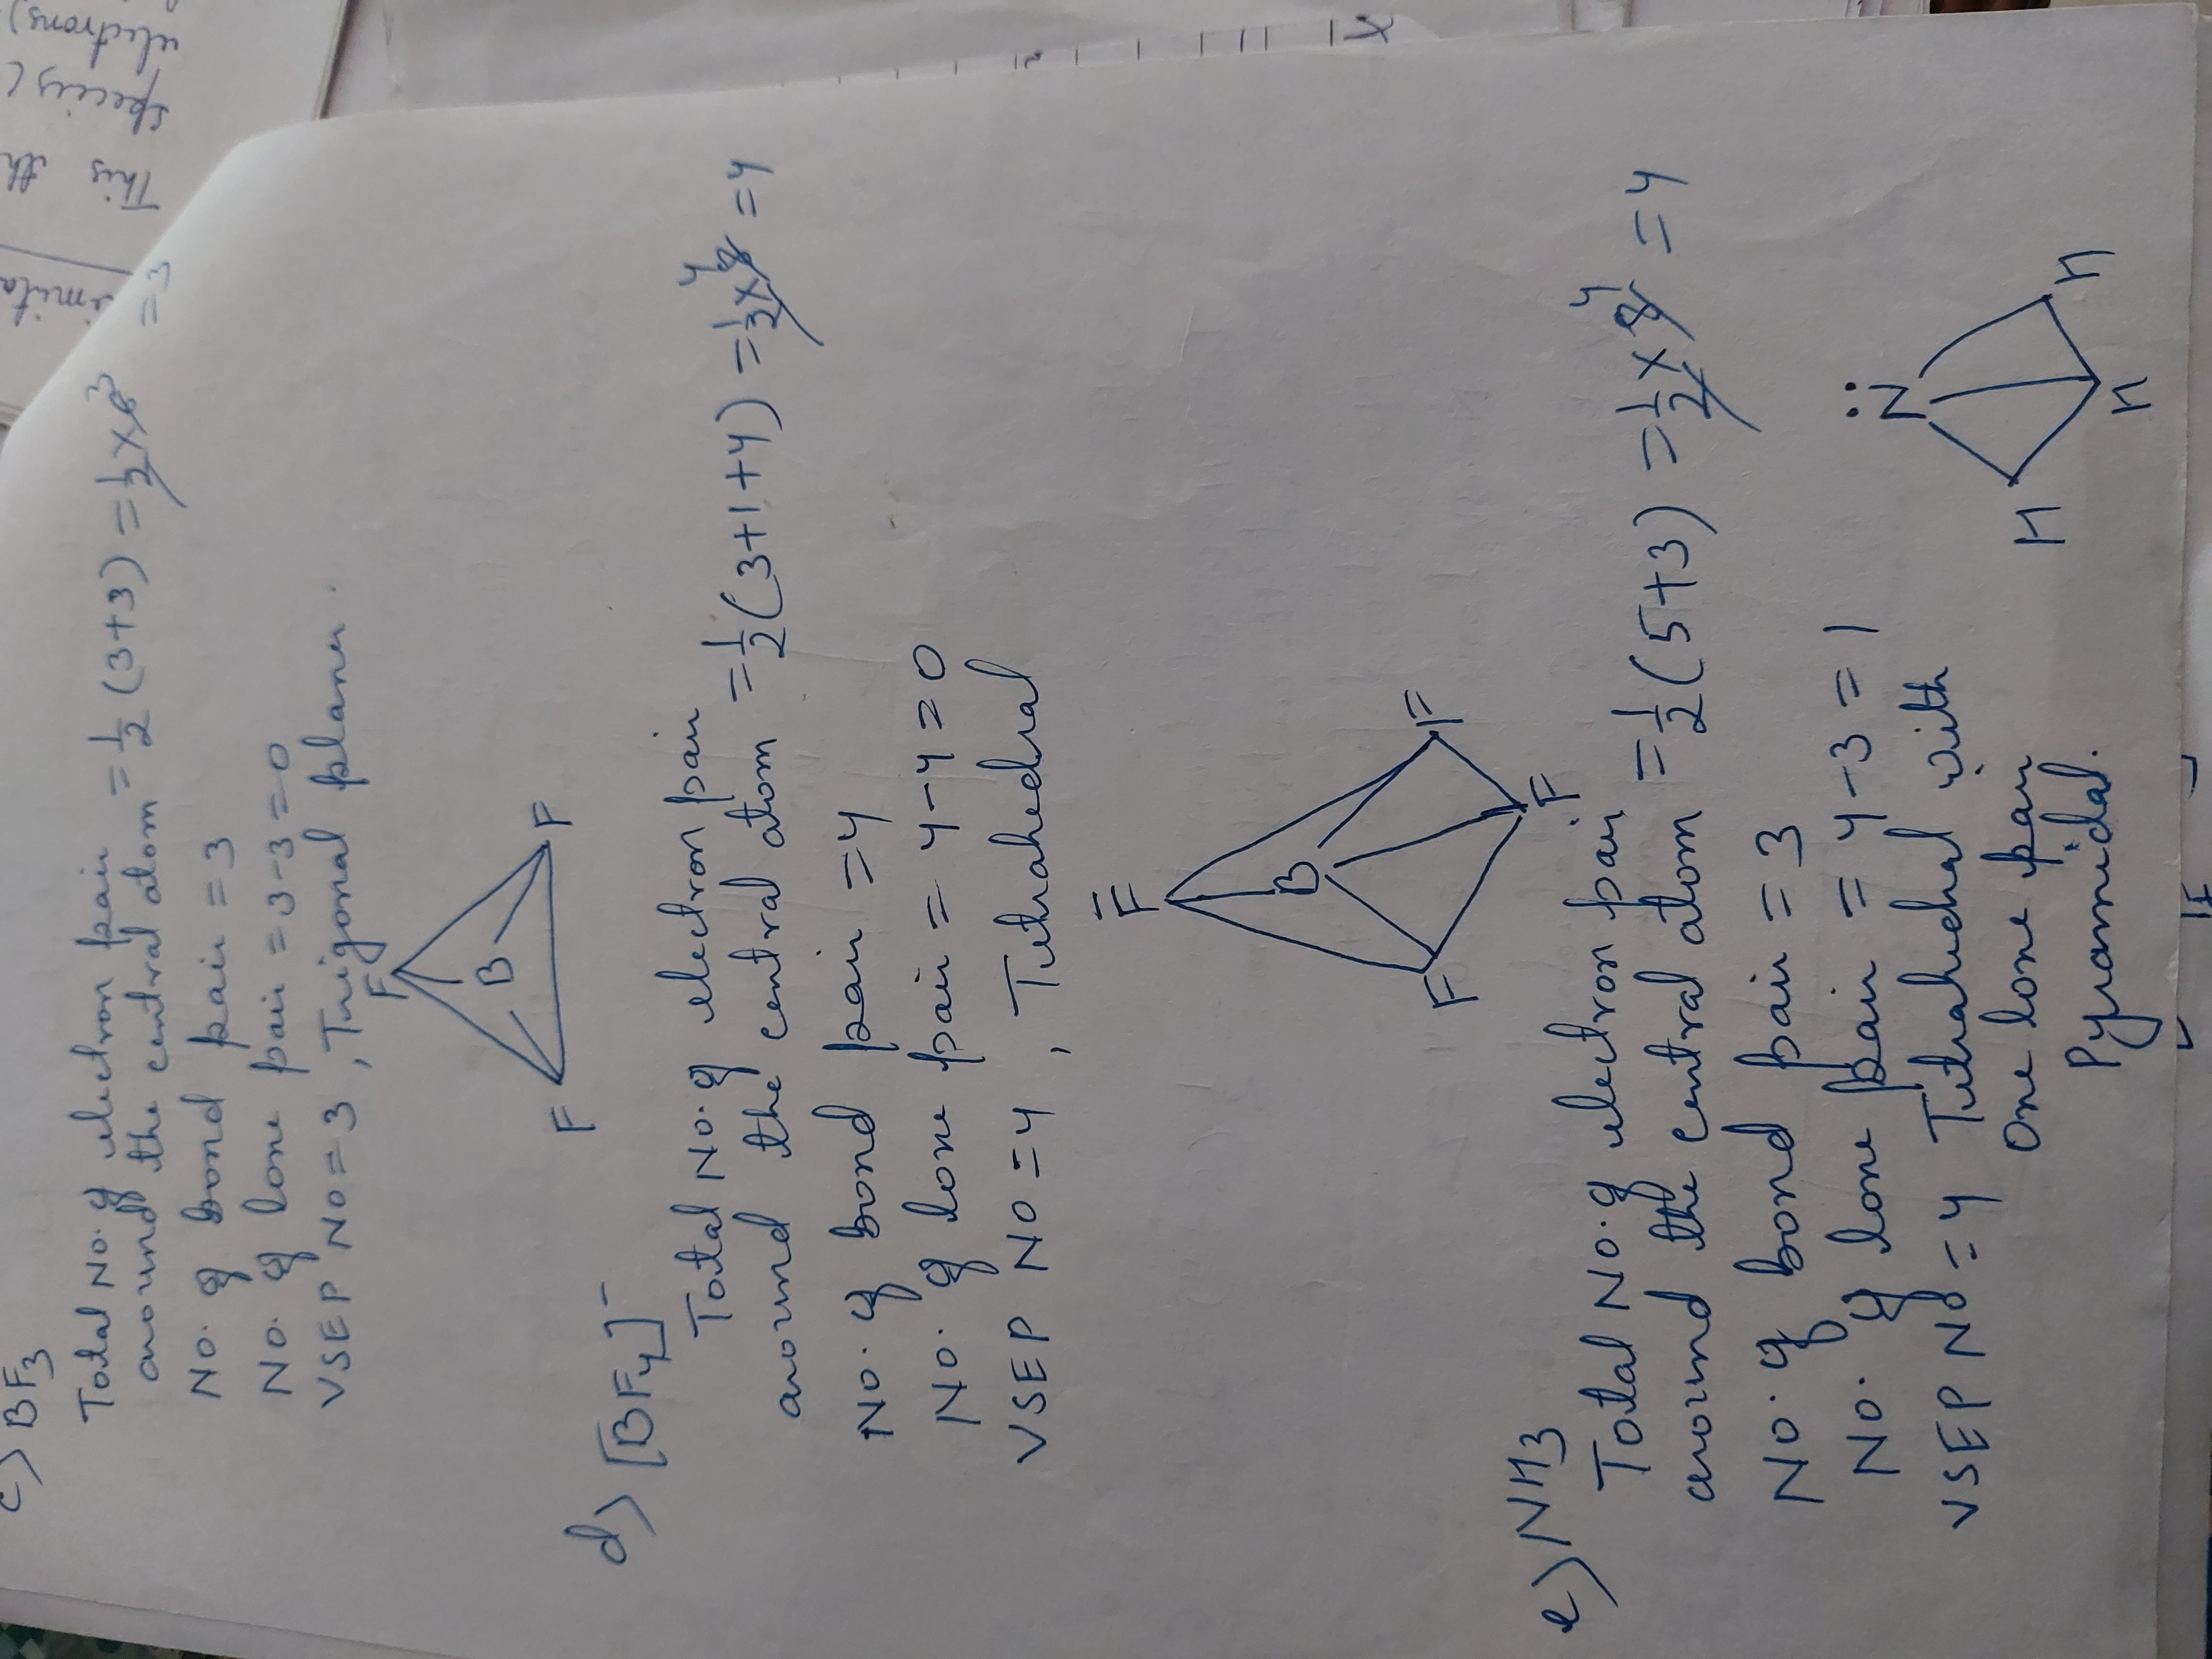 c) BF3
Total No. of electron pair
around the central atom = 1/2 (3+3) = 1/2 x 6 3 = 3
No. of bond pair = 3
No. of lone pair = 3-3=0
VSEP No = 3, Trigonal planer.
F
B
F F
d) [BF4]-
Total No. of electron pair
around the central atom = 1/2 (3+1+4) = 1/2 x 8 4 = 4
No. of bond pair = 4
No. of lone pair = 4-4=0
VSEP No = 4, Tetrahedral
F
B
F F
F
e) NH3
Total No. of electron pair
around the central atom = 1/2 (5+3) = 1/2 x 8 4 = 4
No. of bond pair = 3
No. of lone pair = 4-3=1
VSEP No = 4 Tetrahedral with
One lone pair
Pyramidal.
N
H H
H
This th
species (
electrons)